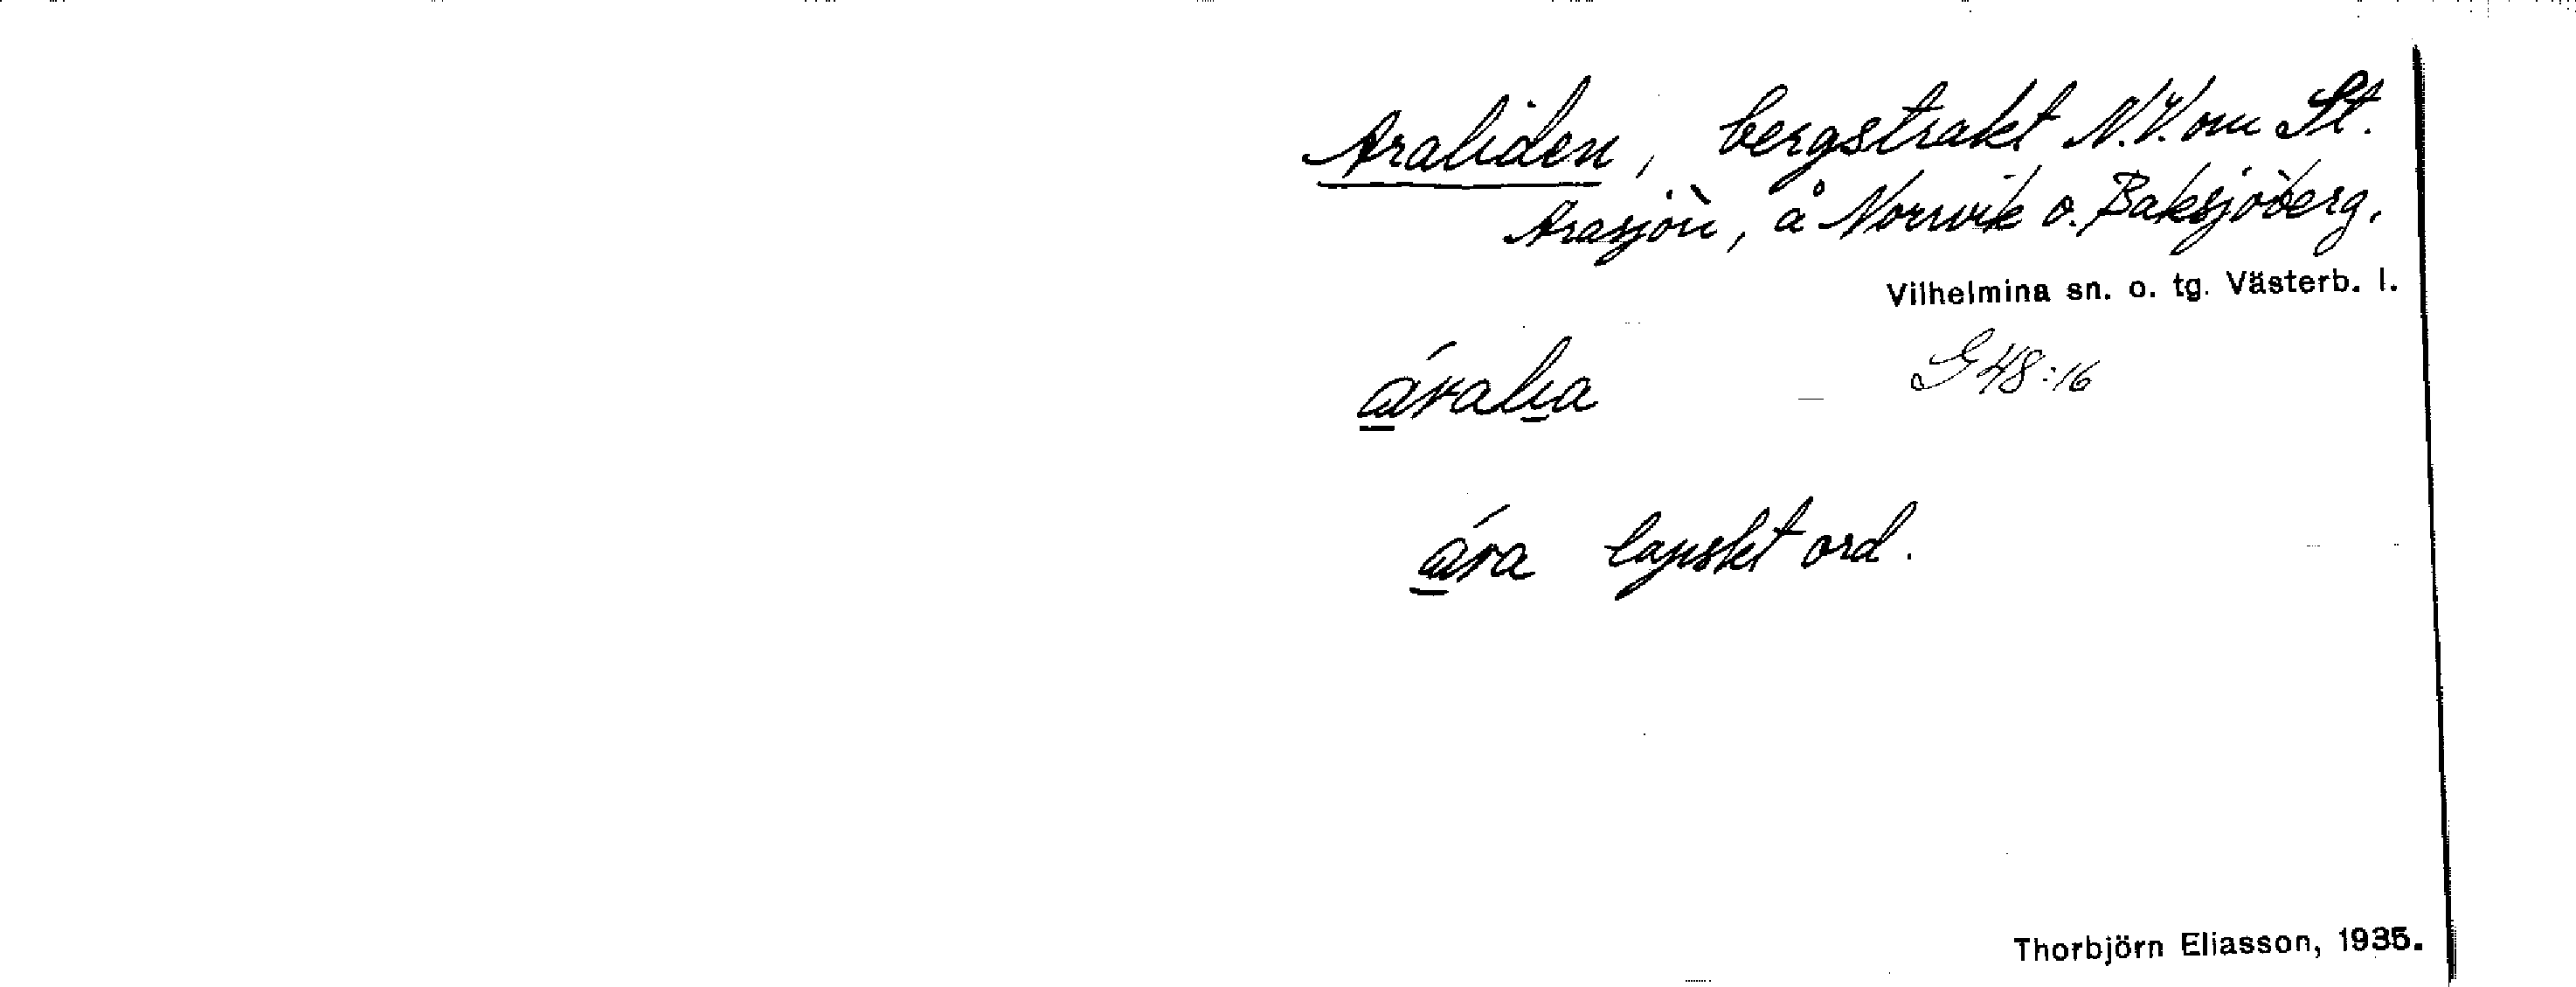 Araliden, bergstrakt N.V. om St.
Arasjön, å Norrvik o. Baksjöberg.
Vilhelmina sn. o. tg. Västerb. l.
áralia G48:16
ára lapskt ord.
Thorbjörn Eliasson, 1935.